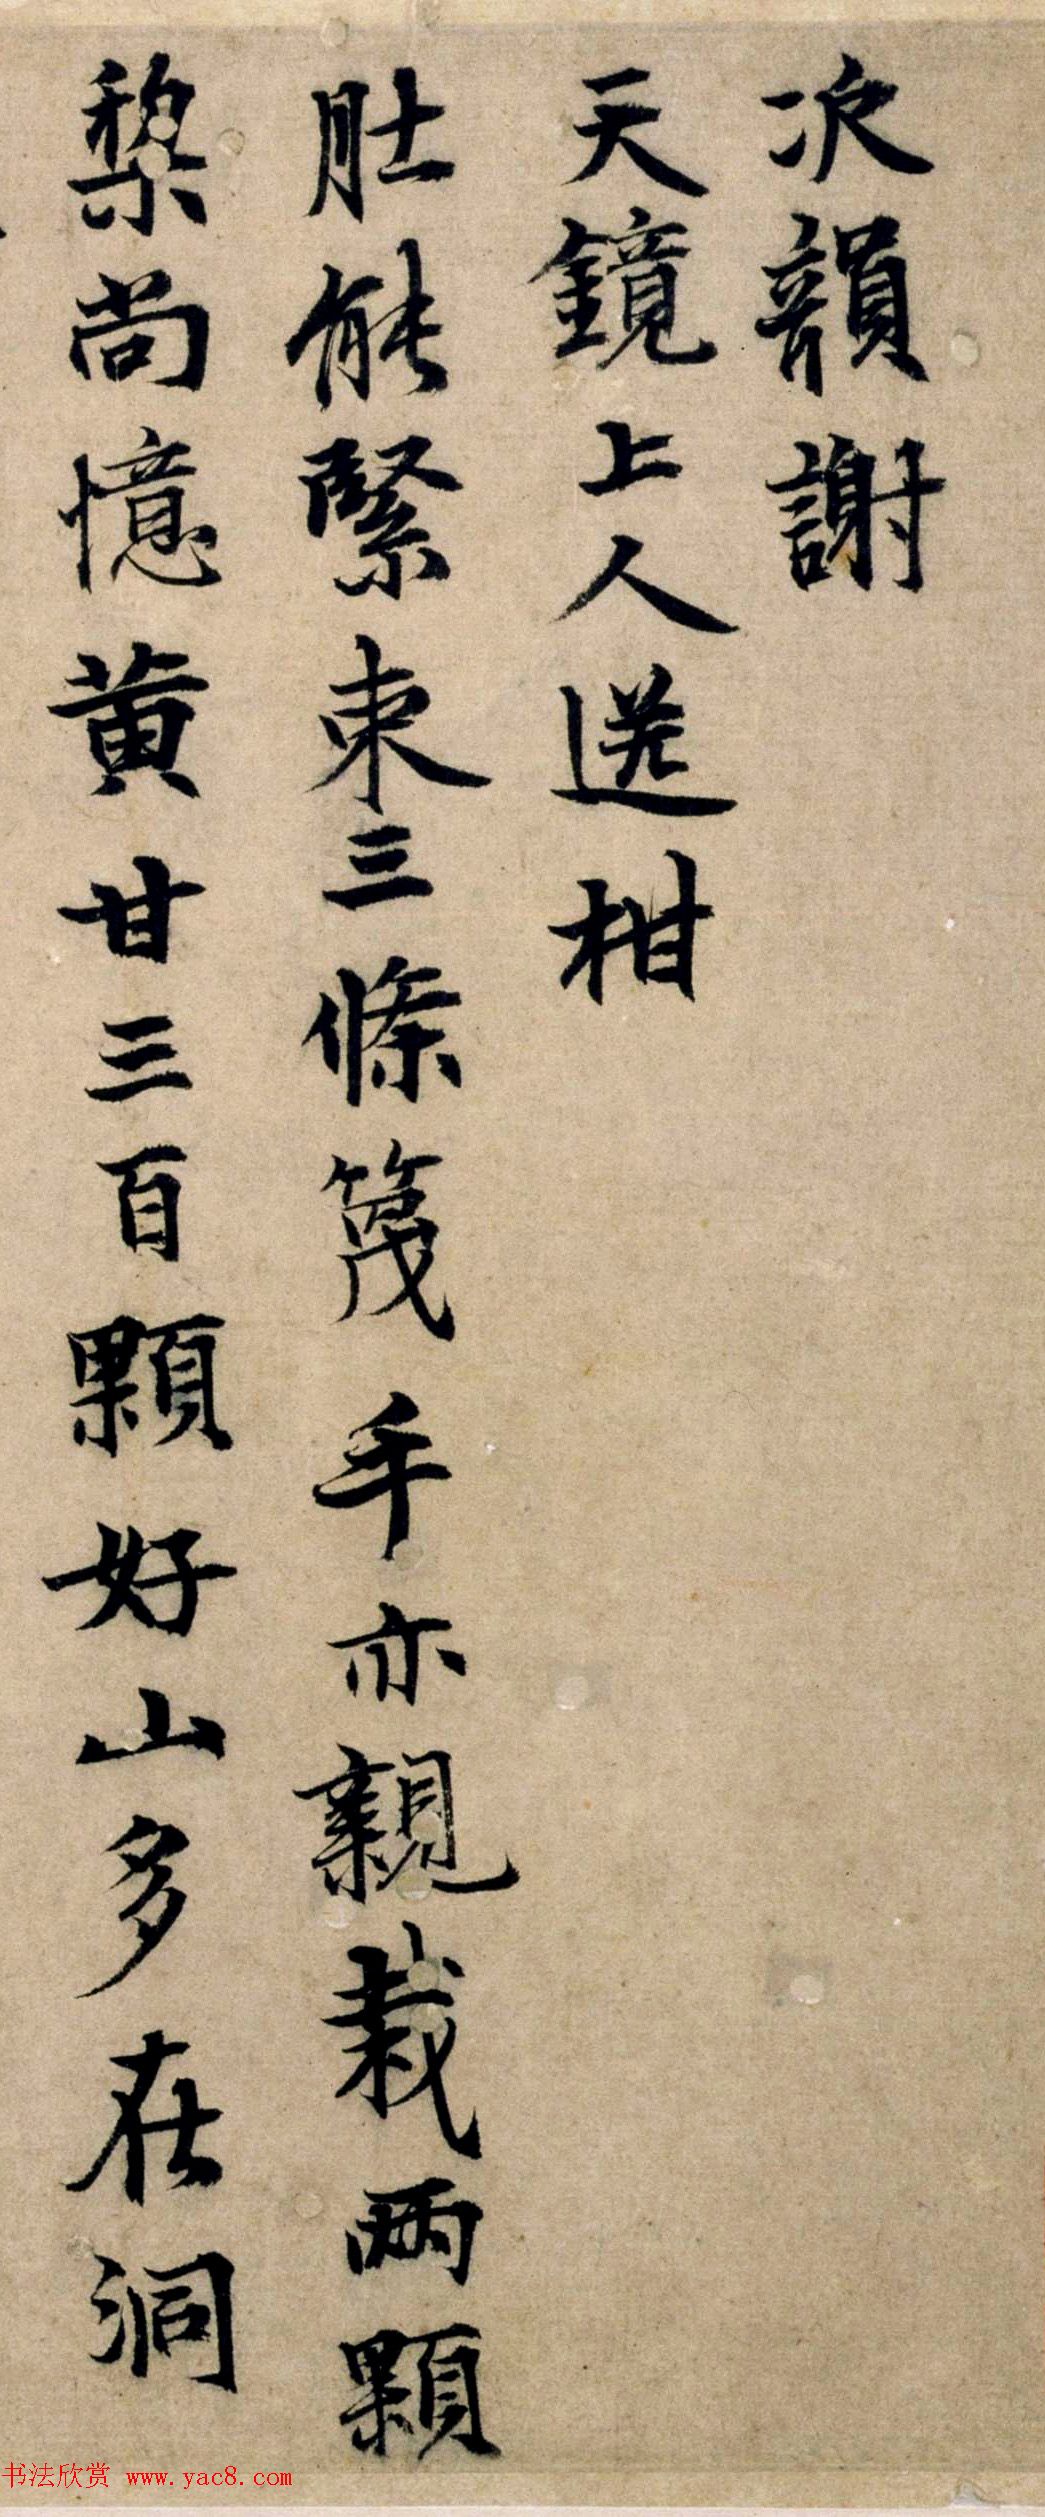 次韻謝
天鏡上人送柑
肚能緊束三條篾手亦親栽兩顆
棃尚憶黃甘三百顆好山多在洞
书法欣赏 www.yac8.com